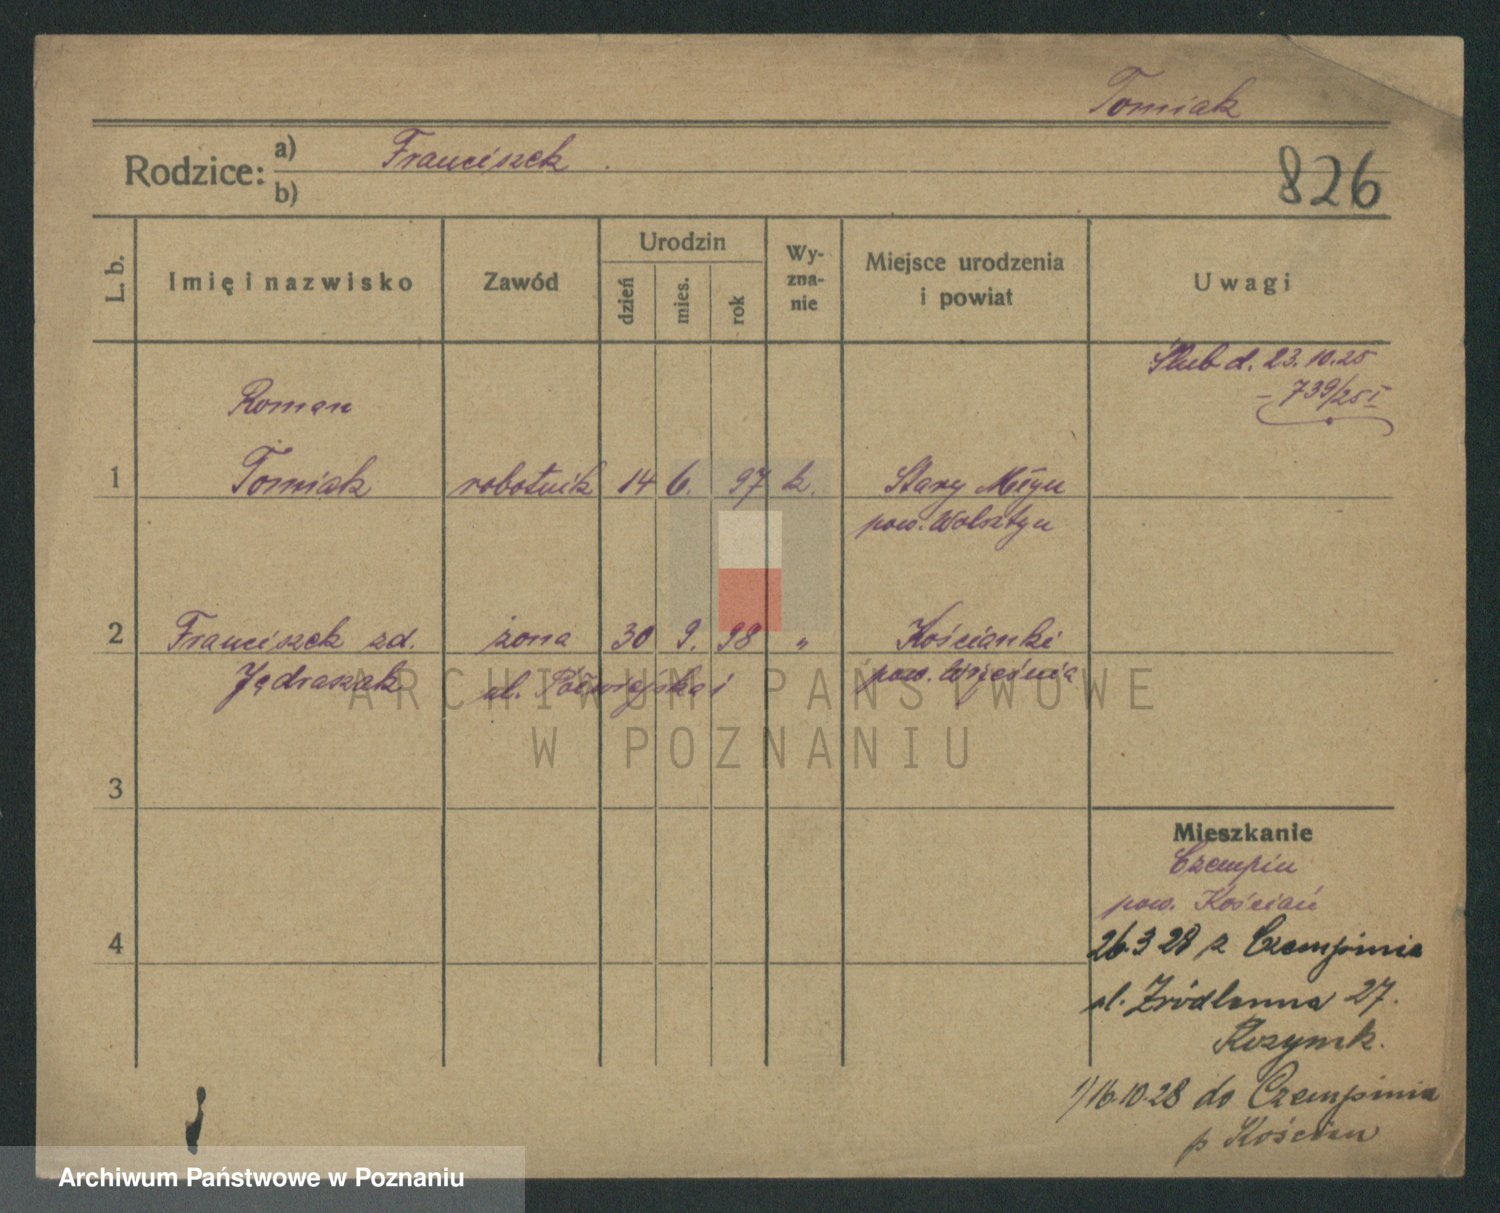 Tomiak
Rodzice: a) Franciszek.
b)
826
L. b. Imię i nazwisko Zawód Urodzin dzień mies. rok Wy-zna-nie Miejsce urodzenia i powiat Uwagi
Ślub d. 23.10.25
– 739/25 I
Roman
1 Tomiak robotnik 14 6. 97 k. Stary Młyn
pow. Wolsztyn
2 Franciszek zd. żona 30 9. 98 „ Kościanki
Jędraszak ul. Półwiejska pow. Września
ARCHIWUM PAŃSTWOWE
W POZNANIU
3
Mieszkanie
Czempiń
pow. Kościań
4
26.3 28 z Czempinia
ul. Źródlanna 27.
1/16.10.28 do Czempinia
p Kościan
Archiwum Państwowe w Poznaniu